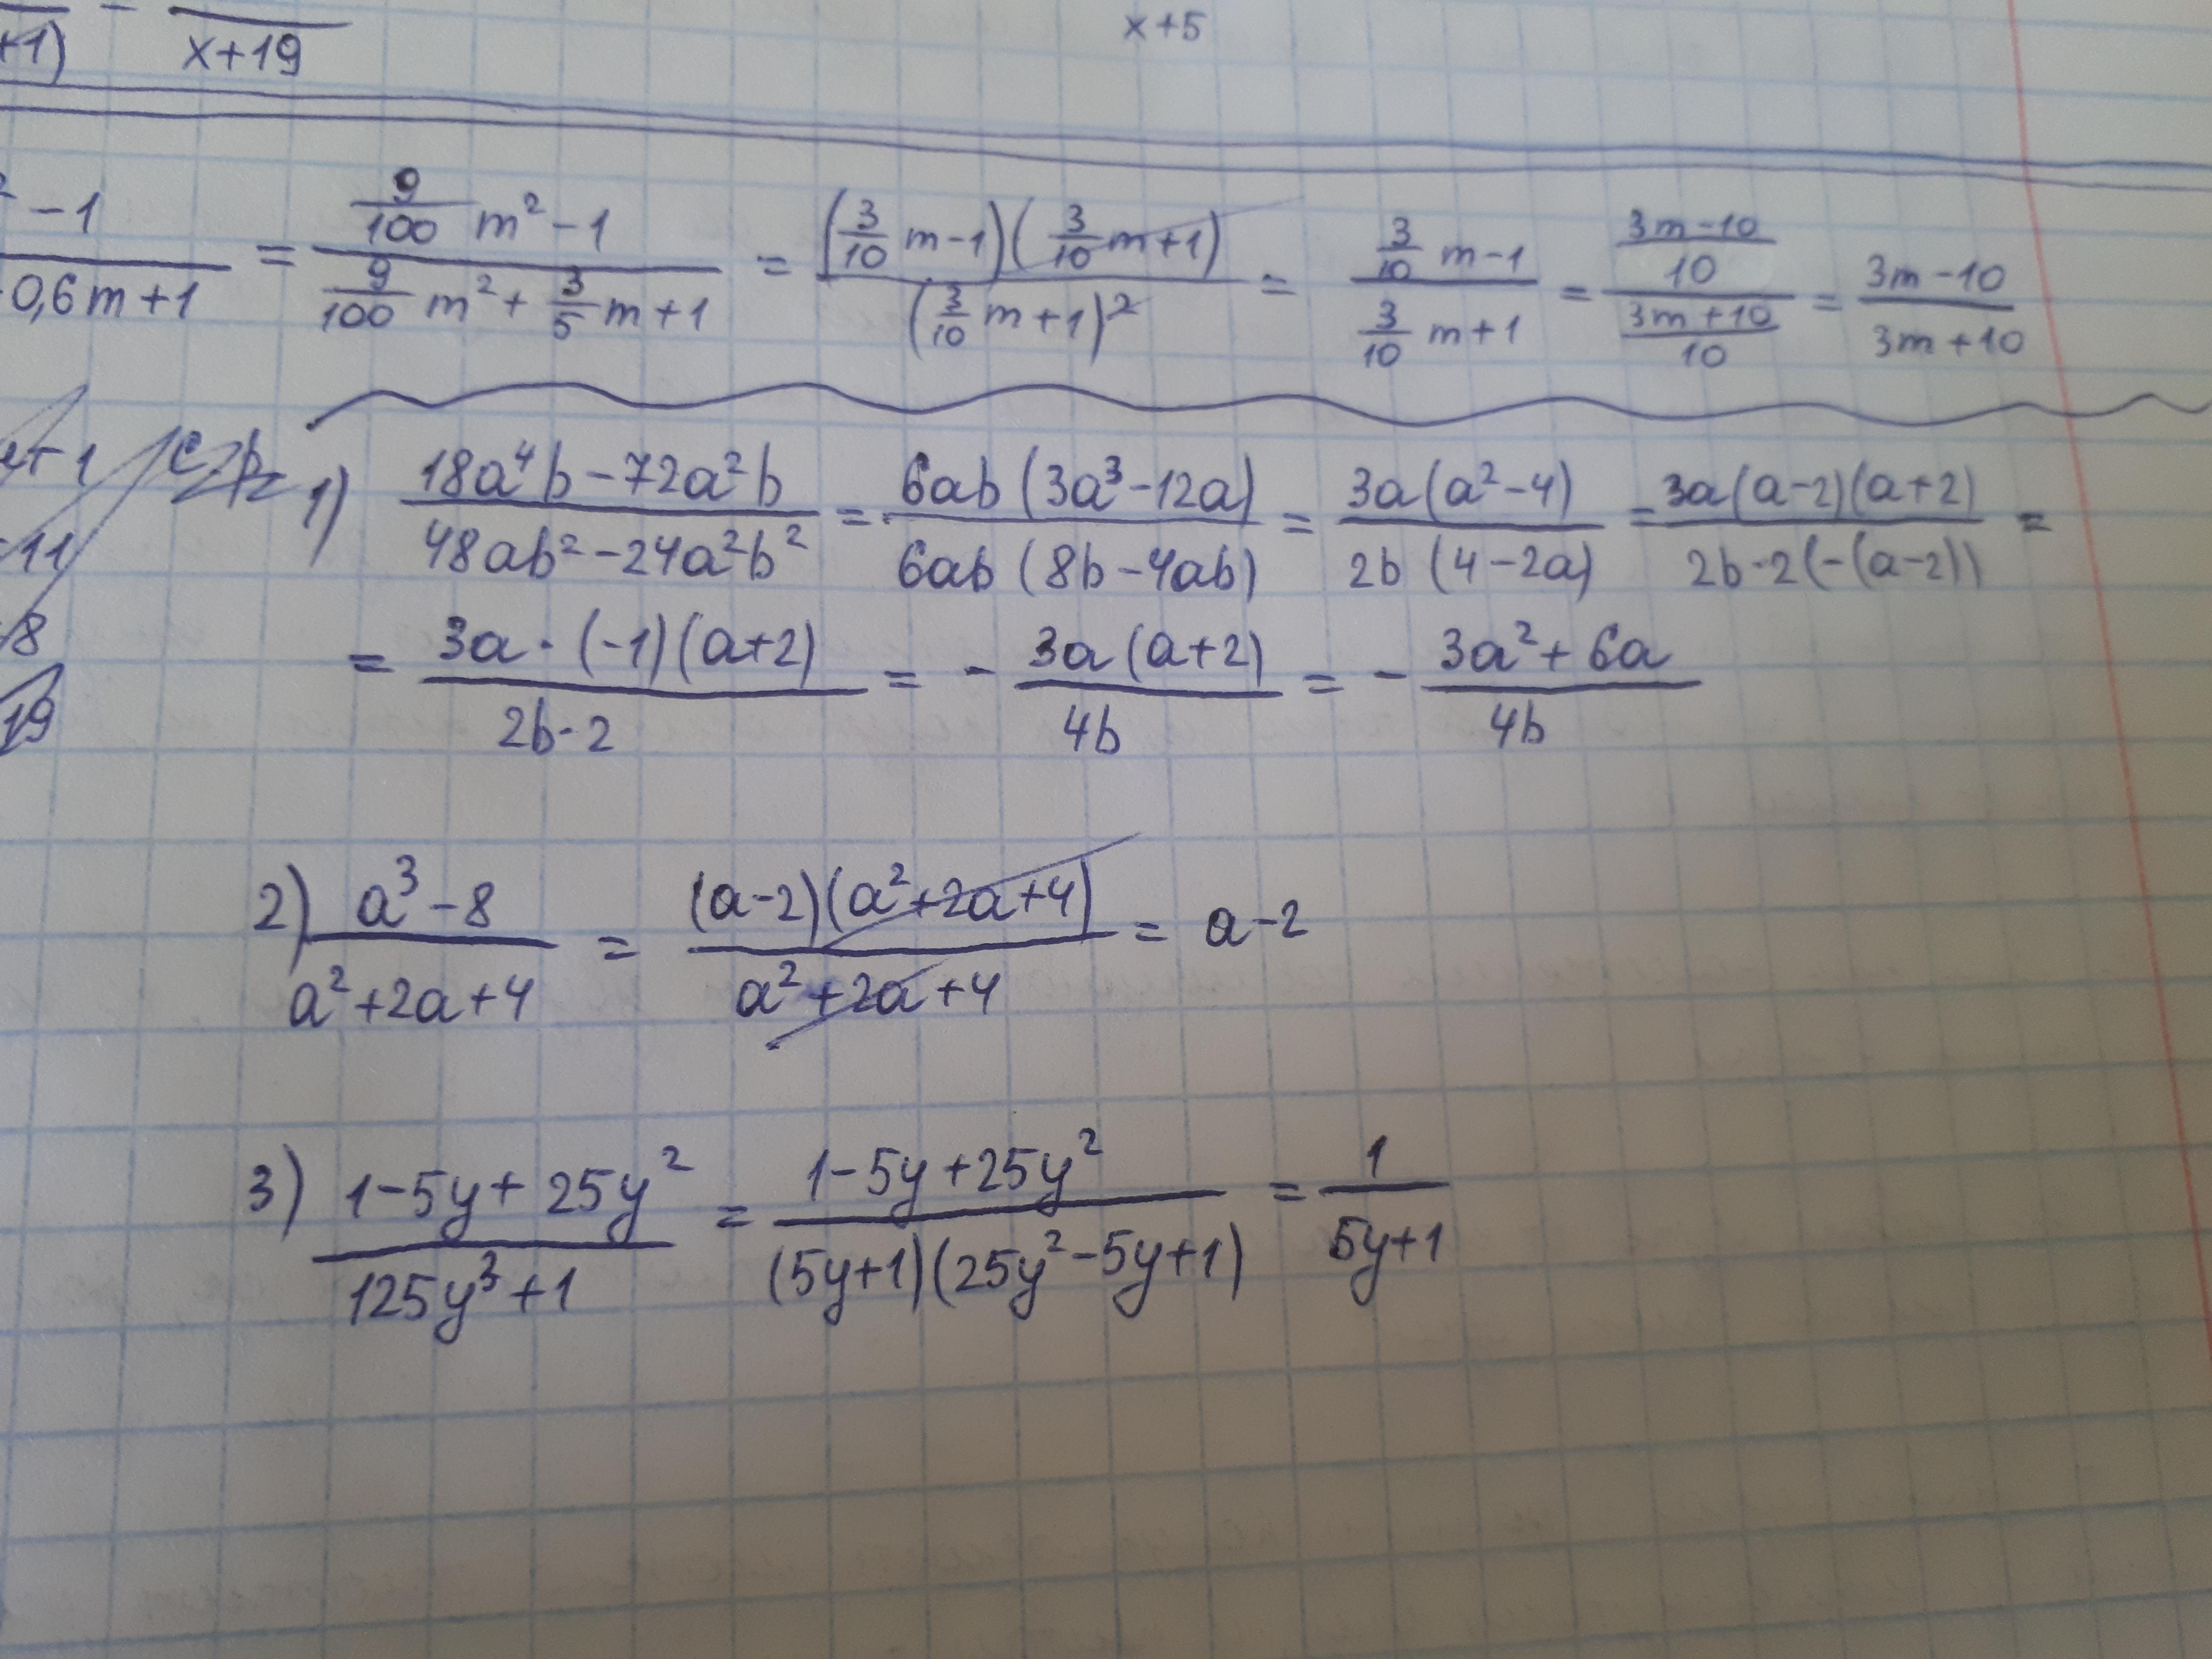 +1) - x+19
x+5
² - 1 / 0,6m+1 = (9/100 m² - 1) / (9/100 m² + 3/5 m + 1) = (3/10 m - 1)(3/10 m + 1) / (3/10 m + 1)² = (3/10 m - 1) / (3/10 m + 1) = ((3m - 10)/10) / ((3m + 10)/10) = (3m - 10) / (3m + 10)
+1
11
8
19
1) (18a⁴b - 72a²b) / (48ab² - 24a²b²) = 6ab (3a³ - 12a) / 6ab (8b - 4ab) = 3a(a² - 4) / 2b (4 - 2a) = 3a(a-2)(a+2) / 2b·2(-(a-2)) =
= 3a · (-1)(a+2) / 2b·2 = - 3a(a+2) / 4b = - (3a² + 6a) / 4b
2) (a³ - 8) / (a² + 2a + 4) = (a-2)(a² + 2a + 4) / (a² + 2a + 4) = a - 2
3) (1 - 5y + 25y²) / (125y³ + 1) = (1 - 5y + 25y²) / (5y+1)(25y² - 5y + 1) = 1 / (5y+1)